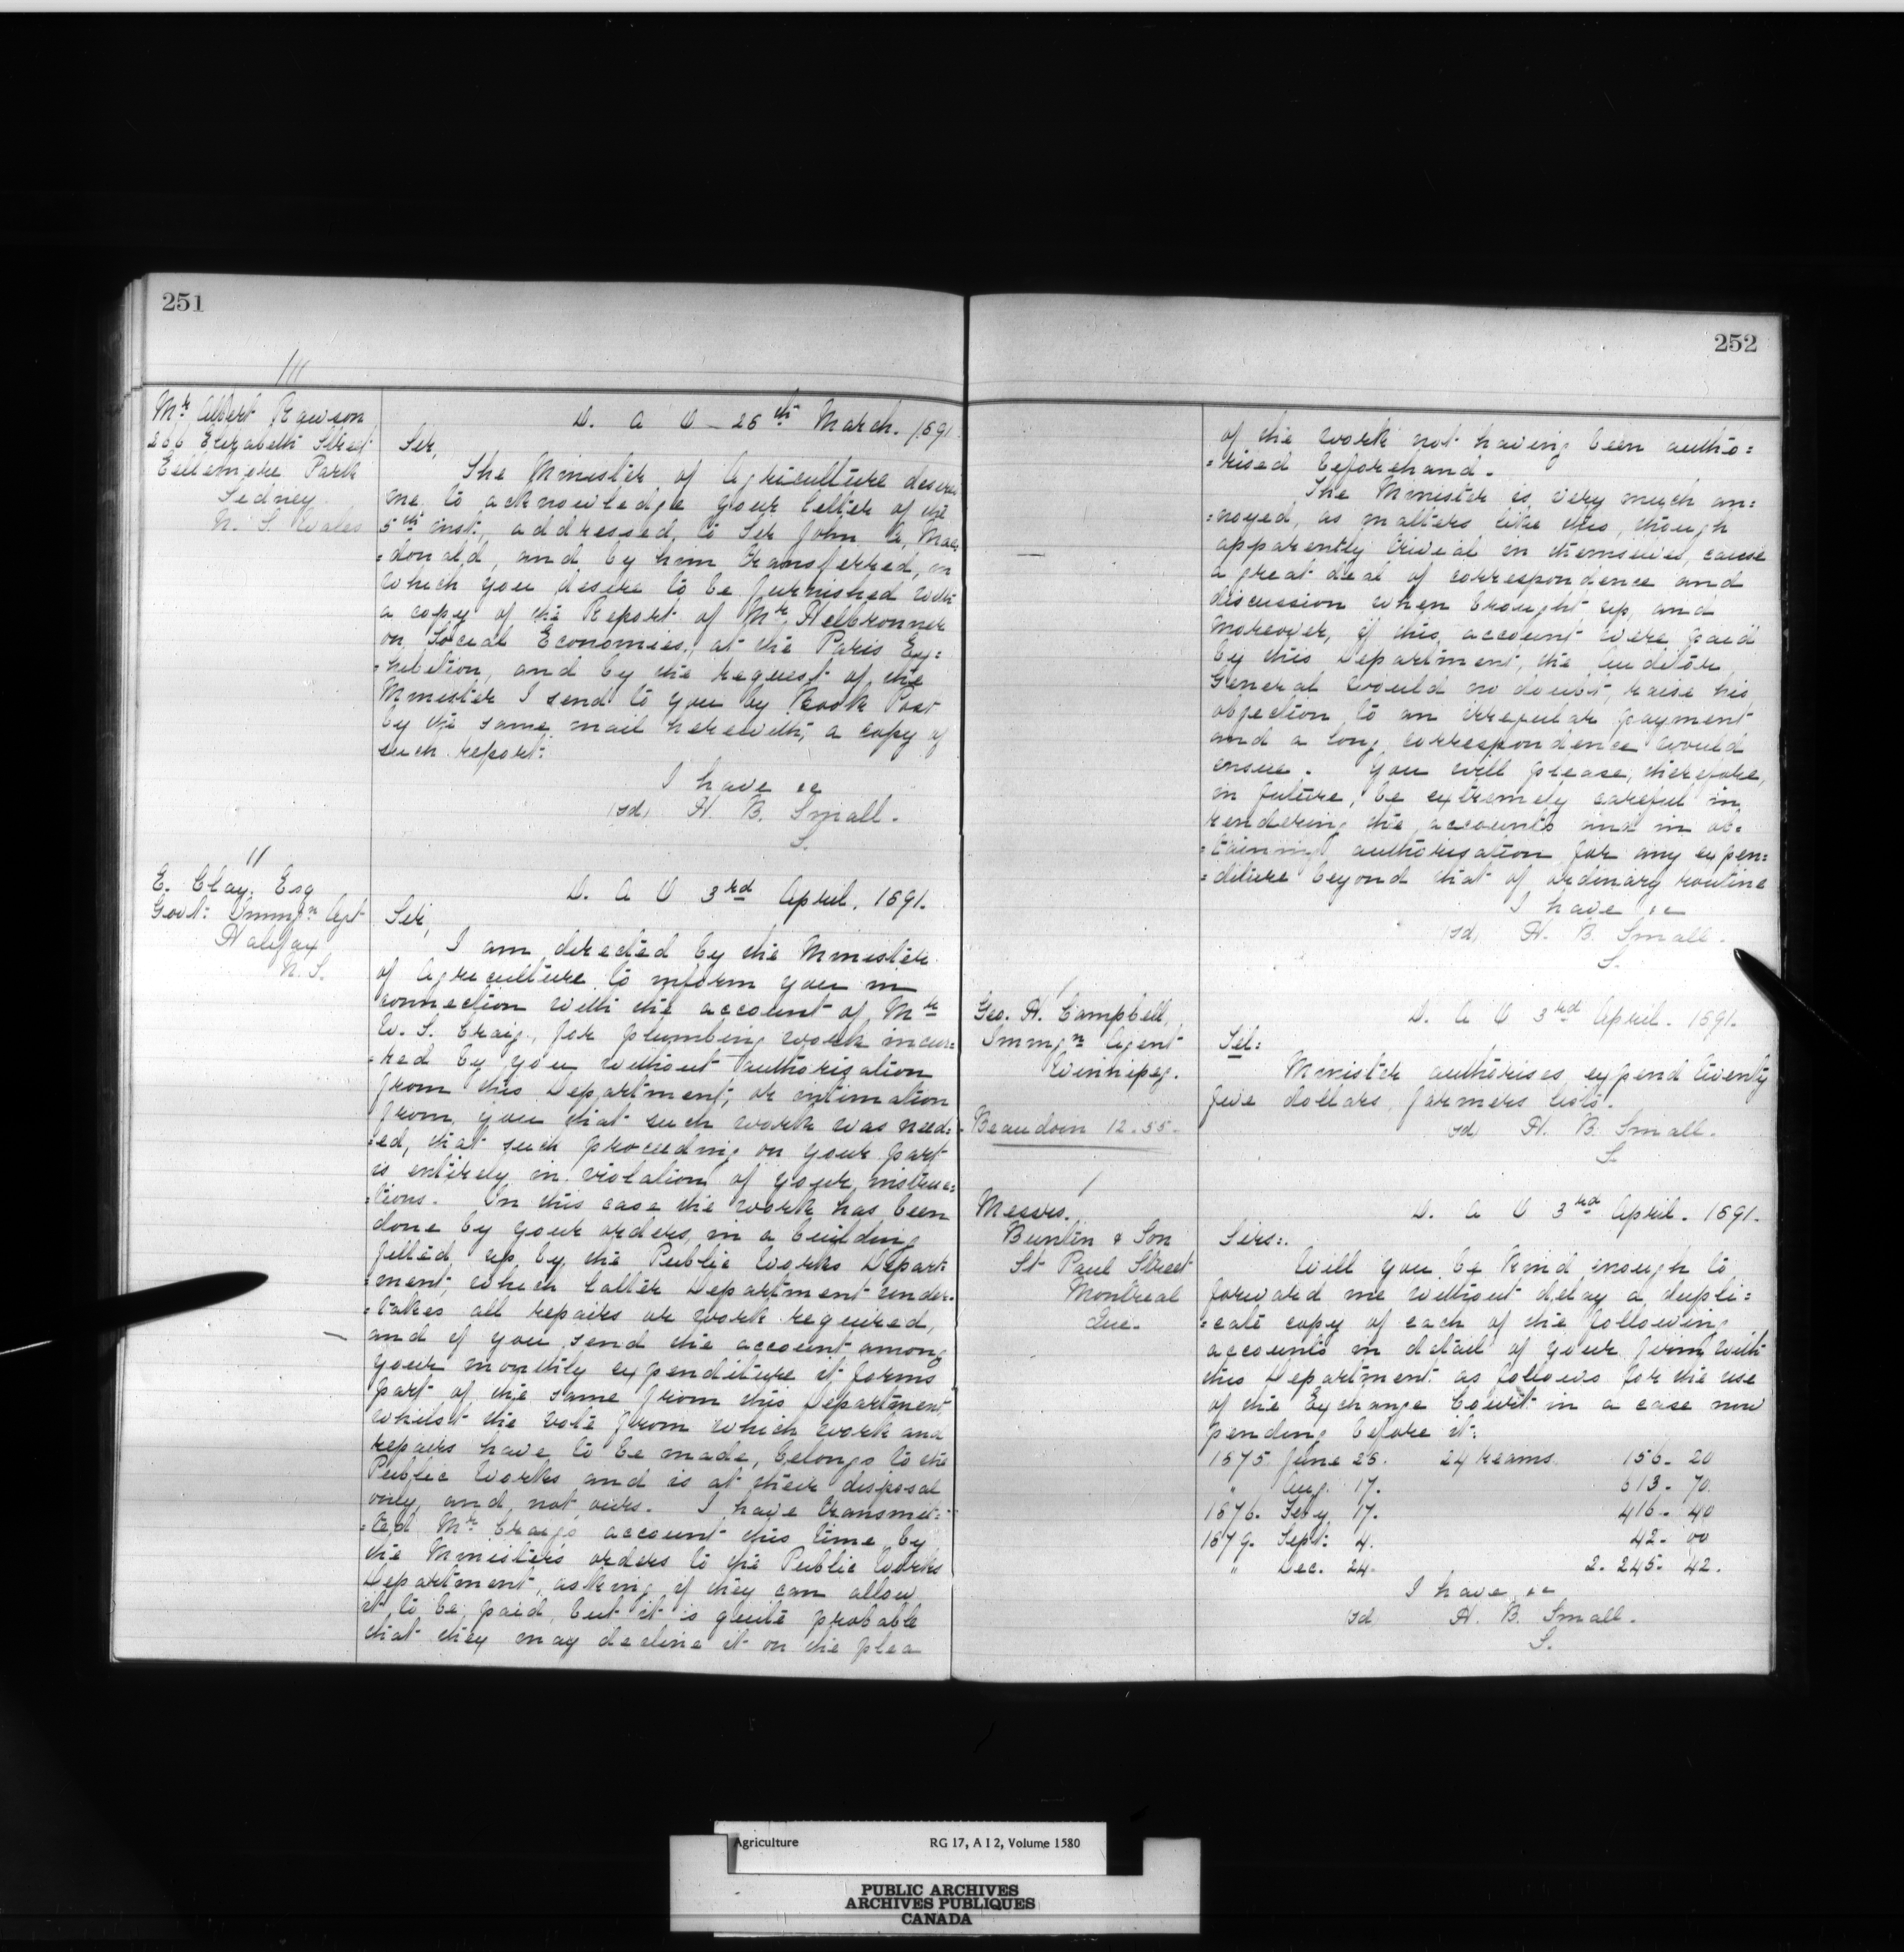 251
Mr Albert Rawson
266 Elizabeth Street
Park
Sedney
N. S. Wales
D. A O 26th March. 1891
Sir,
The Minister of Agriculture desires
me to acknowledge your letter of the
5th inst., addressed to Sir John A. Mac=
=donald, and by him transferred, in
which you desire to be furnished with
a copy of the Report of Mr. Helbronner
on Social Economies, at the Paris Exy=
=hibition, and by the request of the
Minister I send to you by Book Post
by the same mail herewith, a copy of
such report:
I have &c
(sd) H. B. Small.
S.
E. Clay. Esq
Govt: Immgn Agt
Halifax
N. S.
D. A O 3rd April. 1891.
Sir,
I am directed by the Minister
of Agriculture to inform you in
connection with the account of Mr
W. S. Craig, for plumbing work incur=
=red by you without authorisation
from this Department, or intimation
from you that such work was need=
=ed, that such proceeding on your part
is entirely in violation of your instruc=
=tions. In this case the work has been
done by your orders, in a building
fitted up by the Public Works Depart=
=ment, which latter Department under=
=takes all repairs or work required,
and if you send the account among
your monthly expenditure it forms
part of the same from this Department
whilst the vote from which work and
repairs have to be made, belongs to the
Public Works and is at their disposal
only, and not ours. I have transmit=
=ted Mr Craig's account this time by
the Minister's orders to the Public Works
Department, asking if they can allow
it to be paid, but it is quite probable
that they may decline it on the plea
252
of the work not having been autho=
=rised beforehand.
The Minister is very much an=
=noyed, as matters like this, though
apparently trivial in themselves, cause
a great deal of correspondence and
discussion when brought up, and
moreover, if this account were paid
by this Department, the Auditor
General would no doubt, raise his
objection to an irregular payment
and a long correspondence would
ensue. You will please, therefore,
in future, be extremely careful in
rendering the accounts and in ob=
=taining authorisation for any expen=
=diture beyond that of ordinary routine
I have &c
(sd) H. B. Small.
S.
Geo. H. Campbell,
Immgn Agent
Winnipeg.
D. A O 3rd April. 1891.
Tel:
Minister authorises expend twenty
five dollars farmers lists.
(sd) H. B. Small.
S.
Beaudoin 12.55.
Messrs.
Buntin & Son
St Paul Street
Montreal
Que.
D. A O 3rd April. 1891.
Sirs:.
Will you be kind enough to
forward me without delay a dupli=
=cate copy of each of the following
accounts in detail of your firm with
this Department as follows for the use
of the Exchange Court in a case now
pending before it:
1875 June 25. 24 reams. 156. 20
" Aug. 17. 613. 70.
1876. Feby 17. 416. 40
1879. Sept: 4. 42. 00
" Dec. 24. 2. 245. 42.
I have &c
(sd H. B. Small.
S.
Agriculture RG 17, A I 2, Volume 1580
PUBLIC ARCHIVES
ARCHIVES PUBLIQUES
CANADA